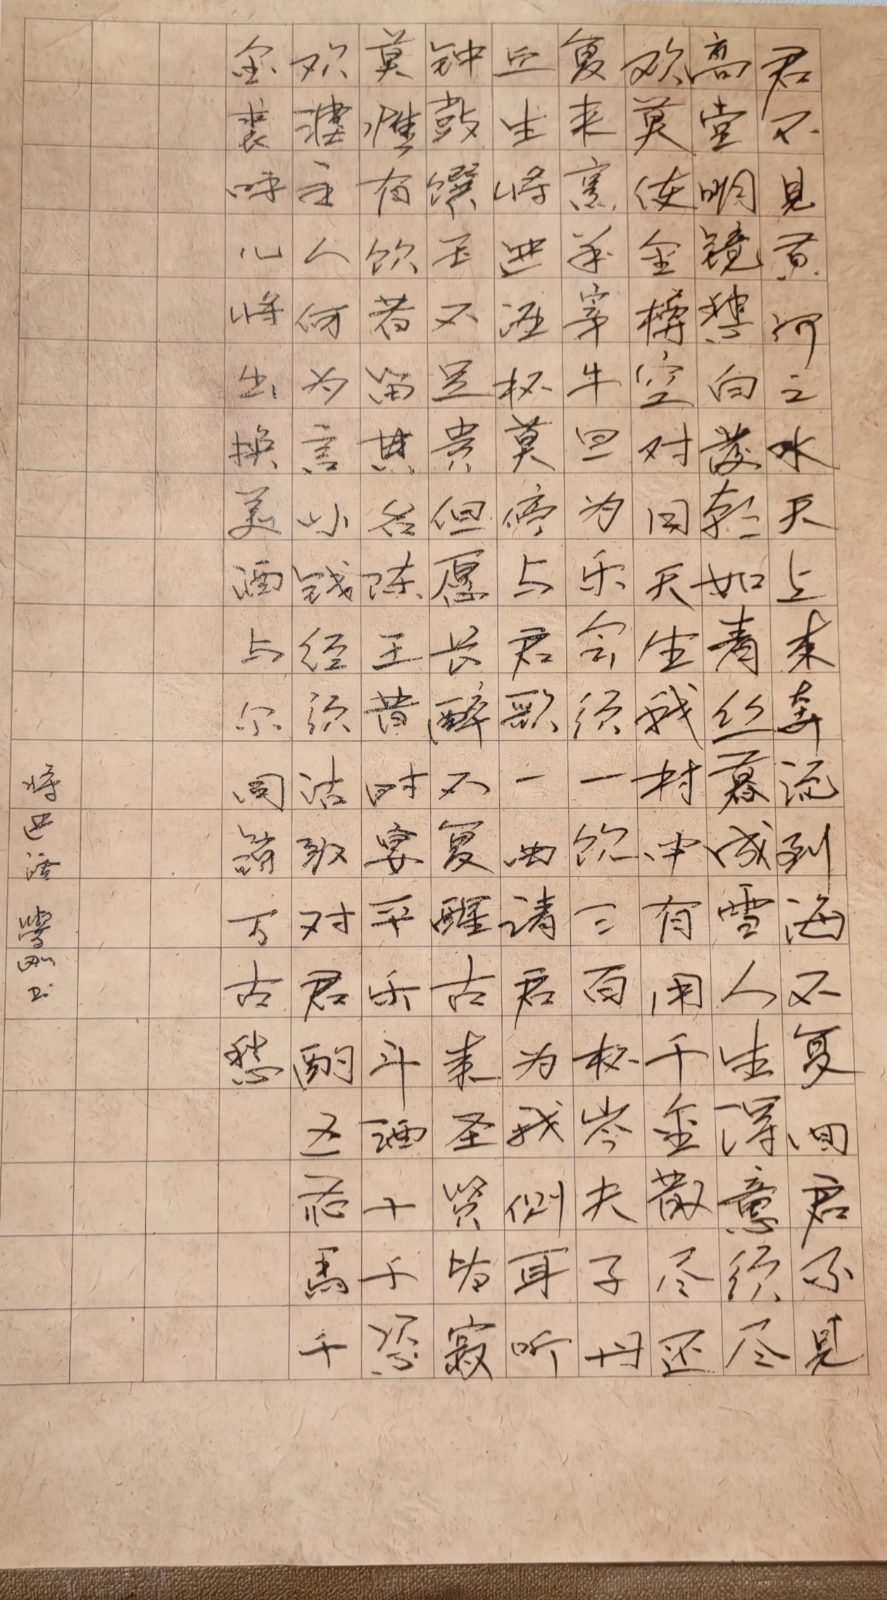 君不见黄河之水天上来奔流到海不复回君不见
高堂明镜愁白发朝如青丝暮成雪人生得意须尽
欢莫使金樽空对月天生我材必有用千金散尽还
复来烹羊宰牛且为乐会须一饮三百杯岑夫子丹
丘生将进酒杯莫停与君歌一曲请君为我侧耳听
钟鼓馔玉不足贵但愿长醉不复醒古来圣贤皆寂
莫惟有饮者留其名陈王昔时宴平乐斗酒十千恣
欢谑主人何为言少钱径须沽取对君酌五花马千
金裘呼儿将出换美酒与尔同销万古愁
将进酒 书